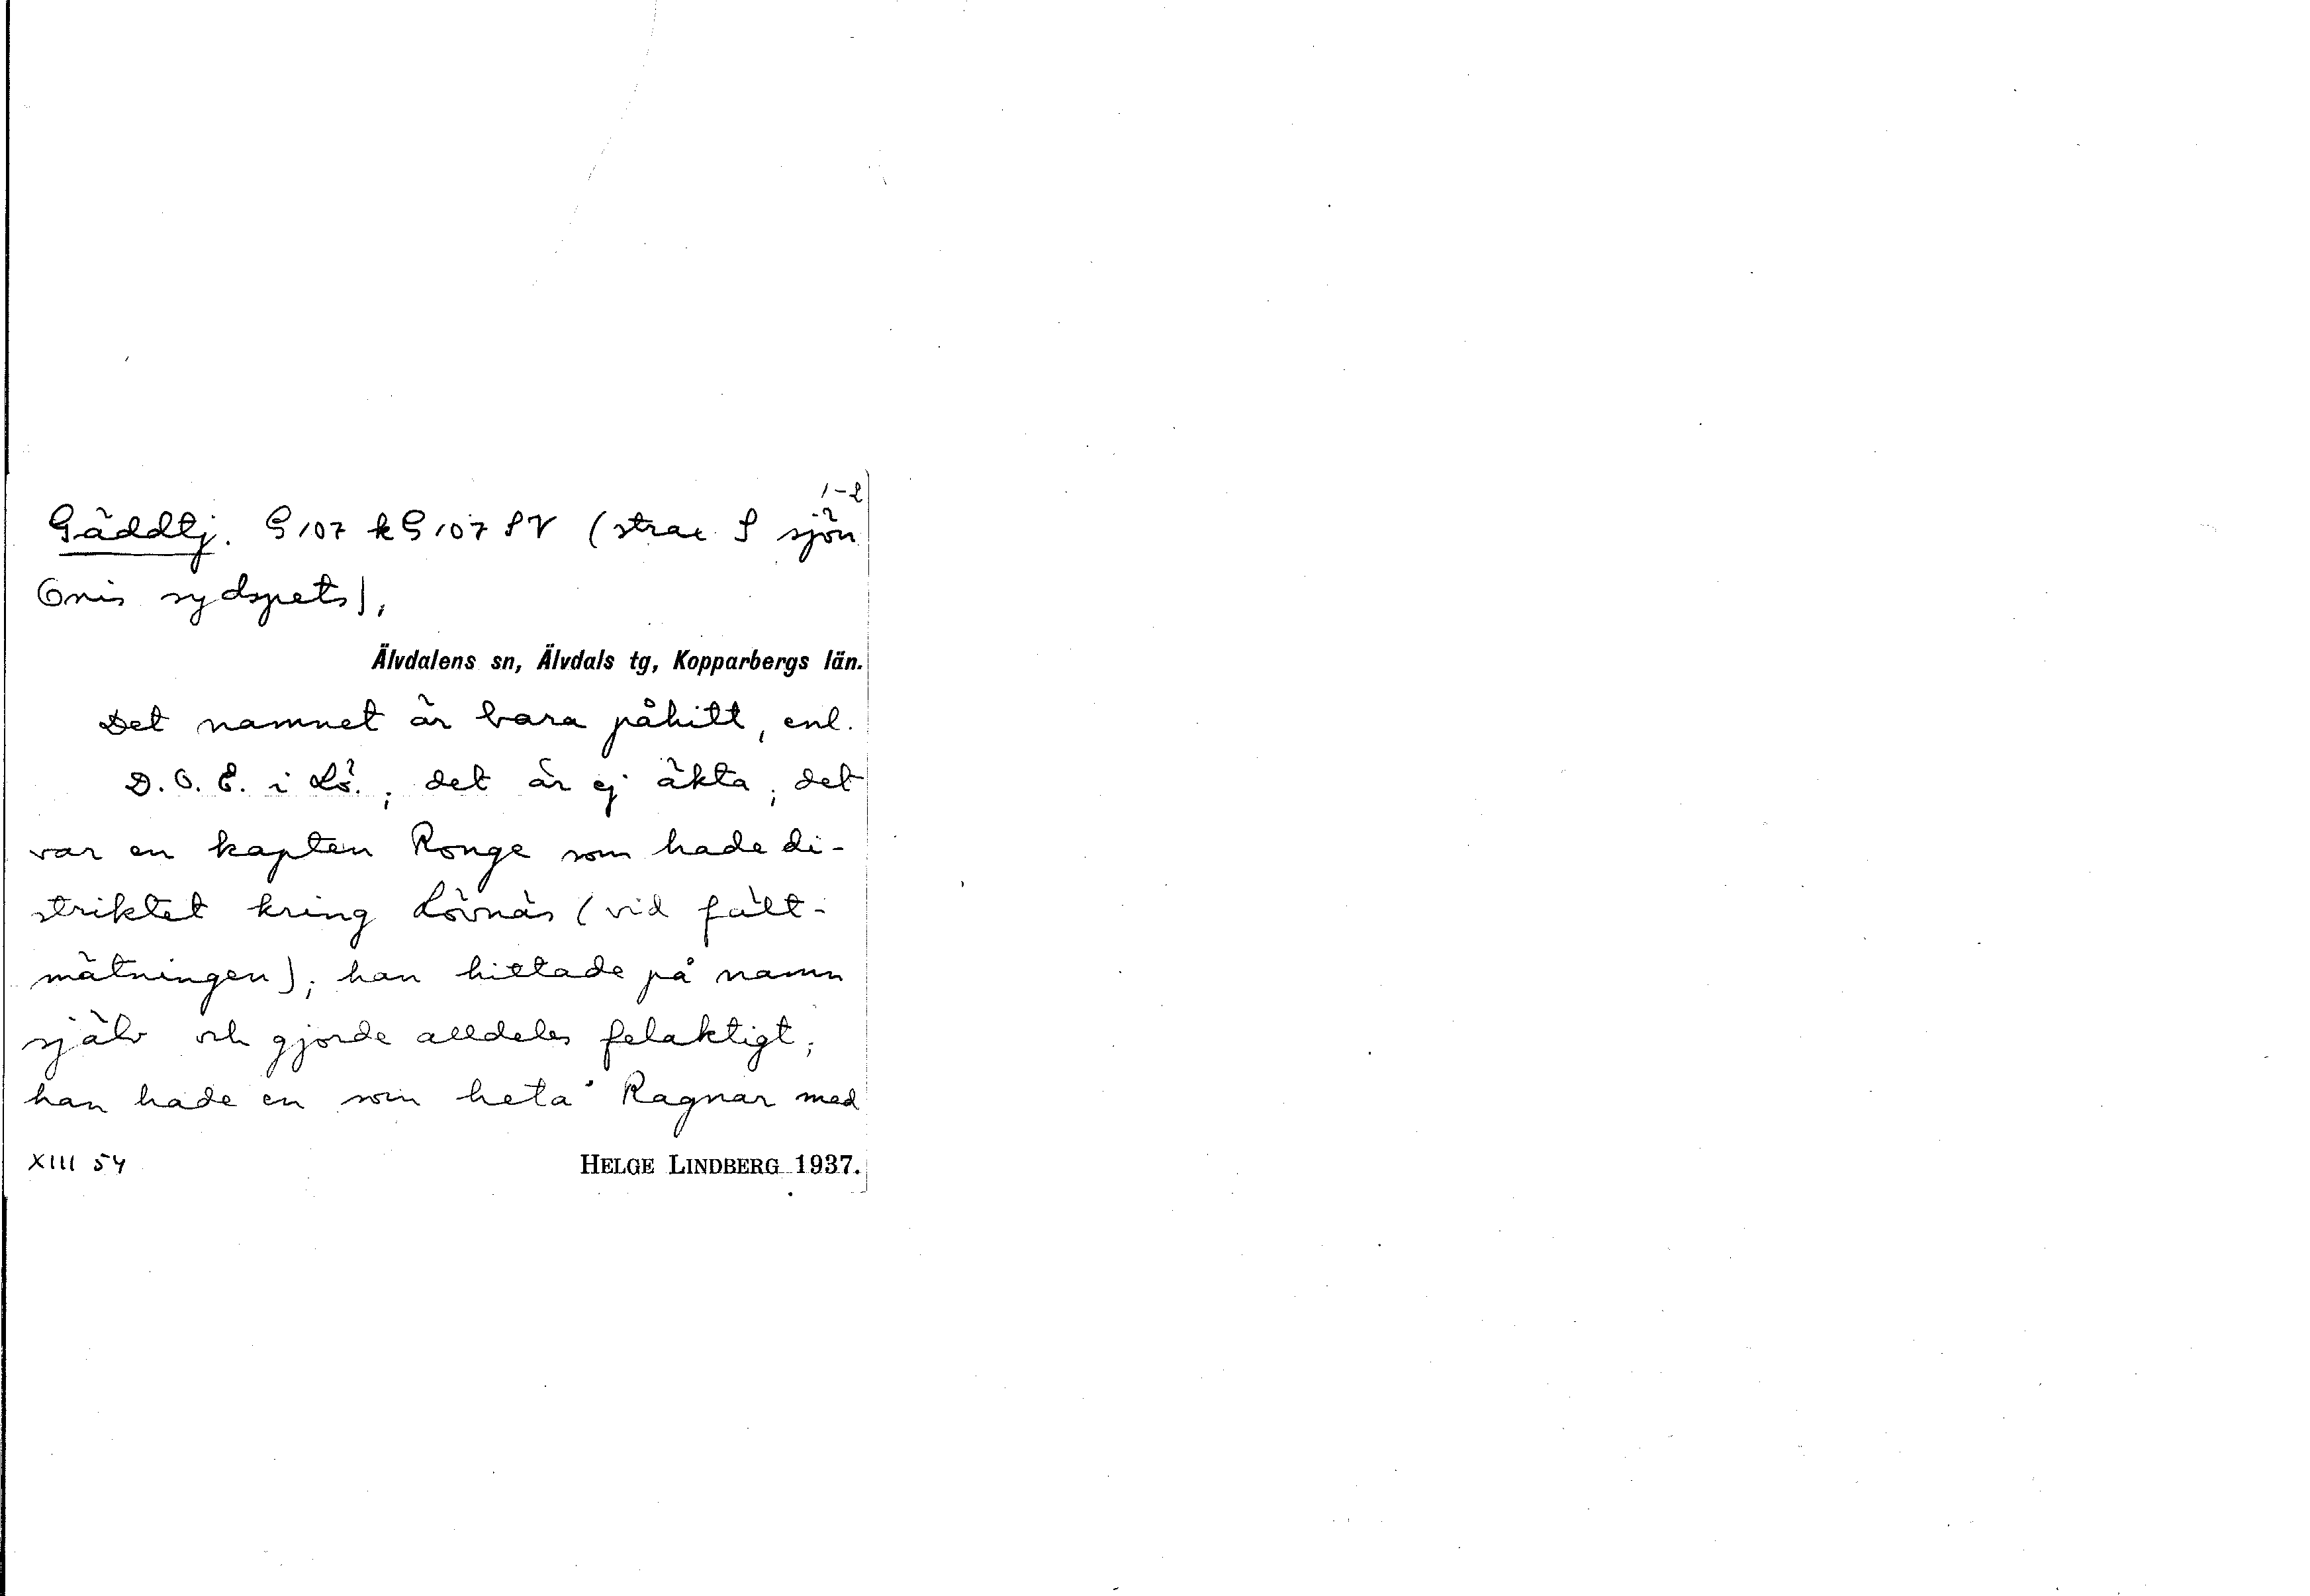 1-2
Gäddtj. G107 kG107 SV (strax S sjön
Onis sydspets),
Älvdalens sn, Älvdals tg, Kopparbergs län.
Det namnet är bara påhitt, enl.
D. O. E. i Lö.; det är ej äkta; det
var en kapten Ronge som hade di-
striktet kring Lövnäs (vid fält-
mätningen); han hittade på namn
själv och gjorde alldeles felaktigt;
han hade en som heta Ragnar med
XIII 54
HELGE LINDBERG 1937.